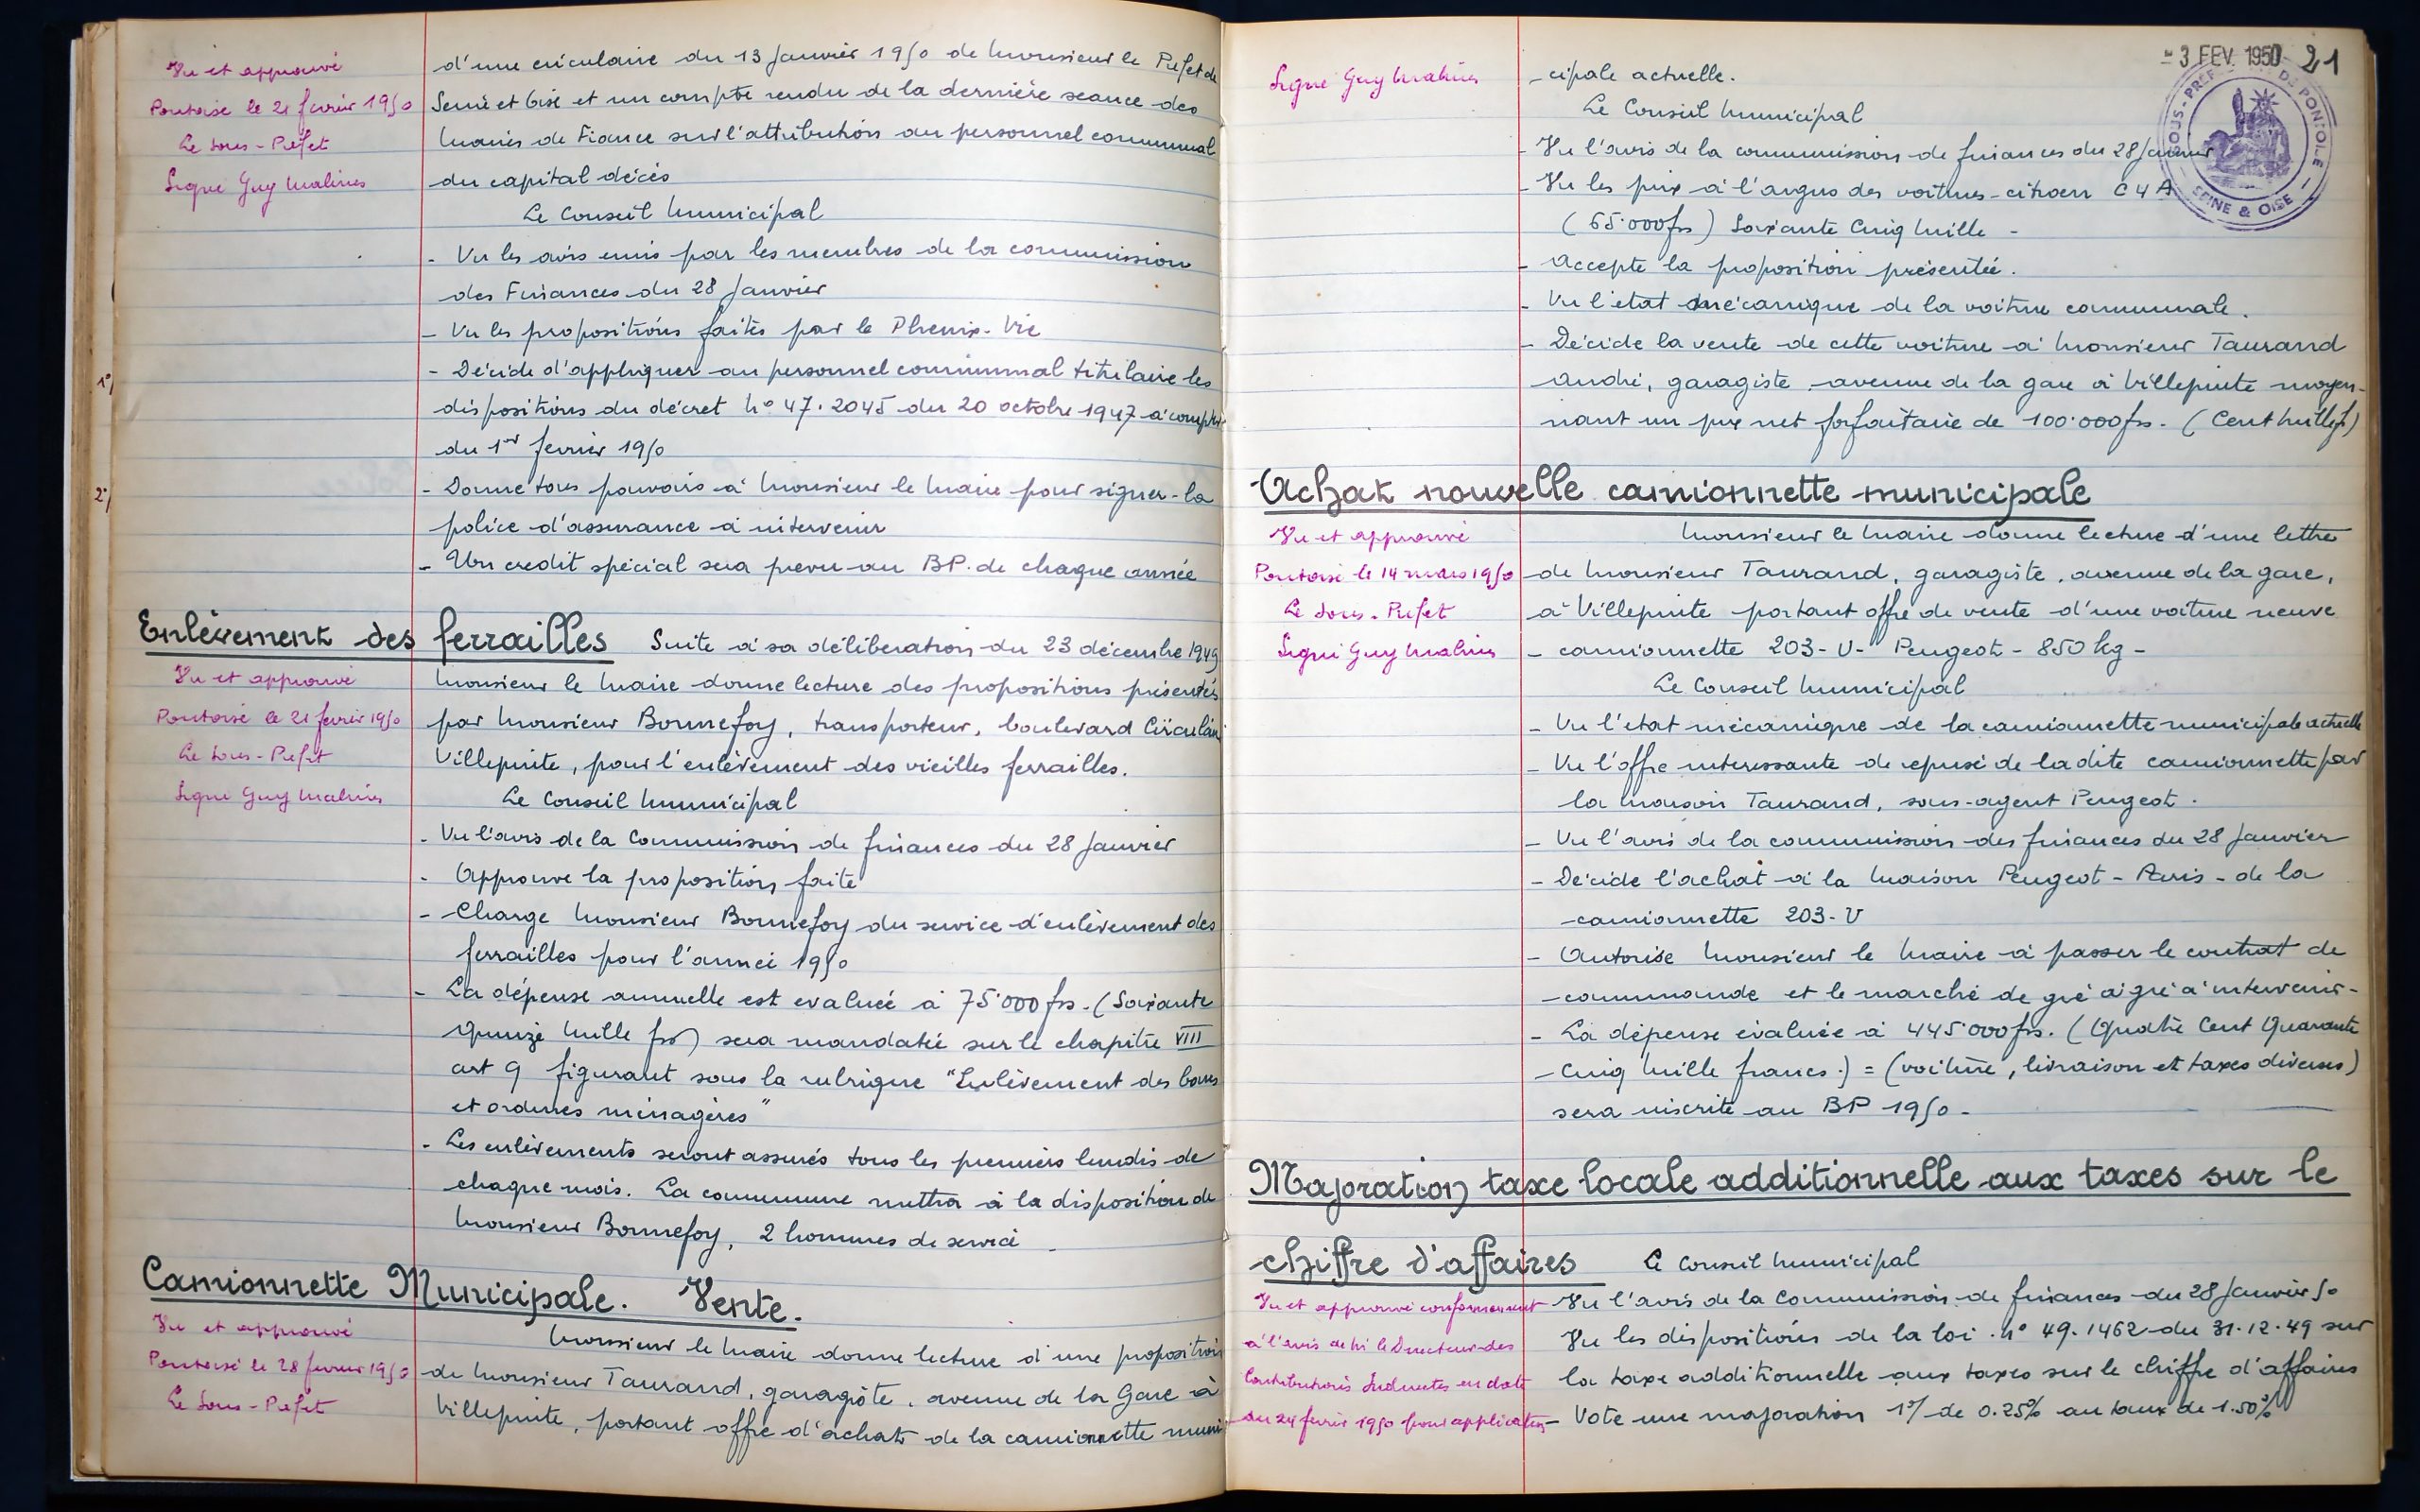 Vu et approuvé
Pontoise le 21 février 1950
Le Sous-Préfet
Signé Guy Malines
d'une circulaire du 13 Janvier 1950 de Monsieur le Préfet de
Seine et Oise et un compte rendu de la dernière séance des
Maires de France sur l'attribution au personnel communal
du capital décès
Le Conseil Municipal
- Vu les avis émis par les membres de la commission
des Finances du 28 Janvier
- Vu les propositions faites par le Phenix-Vie
1°/
- Décide d'appliquer au personnel communal titulaire les
dispositions du décret N° 47.2045 du 20 octobre 1947 à compter
du 1er fevrier 1950
2°/
- Donne tous pouvoirs à Monsieur le Maire pour signer la
police d'assurance à intervenir
- Un credit spécial sera prevu au BP. de chaque année
Enlèvement des ferrailles Suite à sa délibération du 23 décembre 1949
Vu et approuvé
Pontoise le 21 fevrier 1950
Le Sous-Prefet
Signé Guy Malines
Monsieur le Maire donne lecture des propositions présentés
par Monsieur Bonnefoy, transporteur, boulevard Circulaire
Villepinte, pour l'enlèvement des vieilles ferrailles.
Le Conseil Municipal
- Vu l'avis de la Commission de finances du 28 Janvier
- Approuve la proposition faite
- Charge Monsieur Bonnefoy du service d'enlèvement des
ferrailles pour l'année 1950
- La dépense annuelle est evaluée à 75.000 frs. (Soixante
Quinze Mille frs) sera mandatée sur le chapitre VIII
art 9 figurant sous la rubrique "Enlèvement des boues
et ordures ménagères"
- Les enlèvements seront assurés tous les premiers lundis de
chaque mois. La commune mettra à la disposition de
Monsieur Bonnefoy, 2 hommes de service -
Camionnette Municipale. Vente.
Vu et approuvé
Pontoise le 28 fevrier 1950
Le Sous-Préfet
Monsieur le Maire donne lecture d'une proposition
de Monsieur Taurand, garagiste, avenue de la Gare à
Villepinte, portant offre d'achat de la camionnette muni
- 3 FEV. 1950 21
SOUS-PREFECTURE DE PONTOISE
SEINE & OISE
Signé Guy Malines
-cipale actuelle.
Le Conseil Municipal
- Vu l'avis de la commission de finances du 28 Janvier
- Vu les prix à l'argus des voitures citroen C4A
(65.000 frs) Soixante Cinq Mille -
- Accepte la proposition présentée.
- Vu l'état mécanique de la voiture communale.
- Décide la vente de cette voiture à Monsieur Taurand
André, garagiste avenue de la gare à Villepinte moyen-
nant un prix net forfaitaire de 100.000 frs. (Cent Mille f)
Achat nouvelle camionnette municipale
Vu et approuvé
Pontoise le 14 mars 1950
Le Sous-Prefet
Signé Guy Malines
Monsieur le Maire donne lecture d'une lettre
de Monsieur Taurand, garagiste, avenue de la gare,
à Villepinte portant offre de vente d'une voiture neuve
- camionnette 203-U- Peugeot - 850 kg -
Le Conseil Municipal
- Vu l'état mécanique de la camionnette municipale actuelle
- Vu l'offre interessante de reprise de ladite camionnette par
la Maison Taurand, sous-agent Peugeot.
- Vu l'avis de la commission des finances du 28 Janvier
- Décide l'achat à la Maison Peugeot - Paris - de la
camionnette 203-U
- Autorise Monsieur le Maire à passer le contrat de
commande et le marché de gré à gré à intervenir -
- La dépense évaluée à 445.000 frs. (Quatre Cent Quarante
Cinq Mille francs.) = (voiture, livraison et taxes diverses)
sera inscrite au BP 1950 -
Majoration taxe locale additionnelle aux taxes sur le
chiffre d'affaires Le Conseil Municipal
Vu et approuvé conformément
à l'avis de Mr le Directeur des
Contributions Indirectes en date
du 24 fevrier 1950 pour application
Vu l'avis de la Commission de finances du 28 Janvier 50
Vu les dispositions de la loi N° 49.1462 du 31.12.49 sur
la taxe additionnelle aux taxes sur le chiffre d'affaires
- Vote une majoration 1°/ de 0.25% au taux de 1.50%